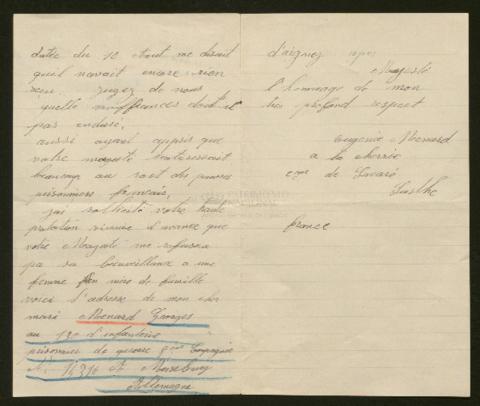 datée du 10 Aout me disait
qu'il navait encore rien
reçu. jugez de nous
quelle souffrances doit il
pas enduré,
aussi ayant appris que
votre majesté
beaucoup au sort des pauvres
prisonniers français,
j'ai sollicité votre haute
protection d'avance que
votre Magesté me refusera
pa sa bienveillance a une
femme mère de famille
voici l'adresse de mon cher
mari Menard Georges
au 130 d'infanterie
prisonnier de guerre Compagnie
Nº 16316 A Merseburg
Allemagne
d'aigner
Magesté
l'hommage de mon
très profond respect
Eugenie Menard
a la
cne de Lavaré
Sarthe
france
PATRIMONIO
NACIONAL